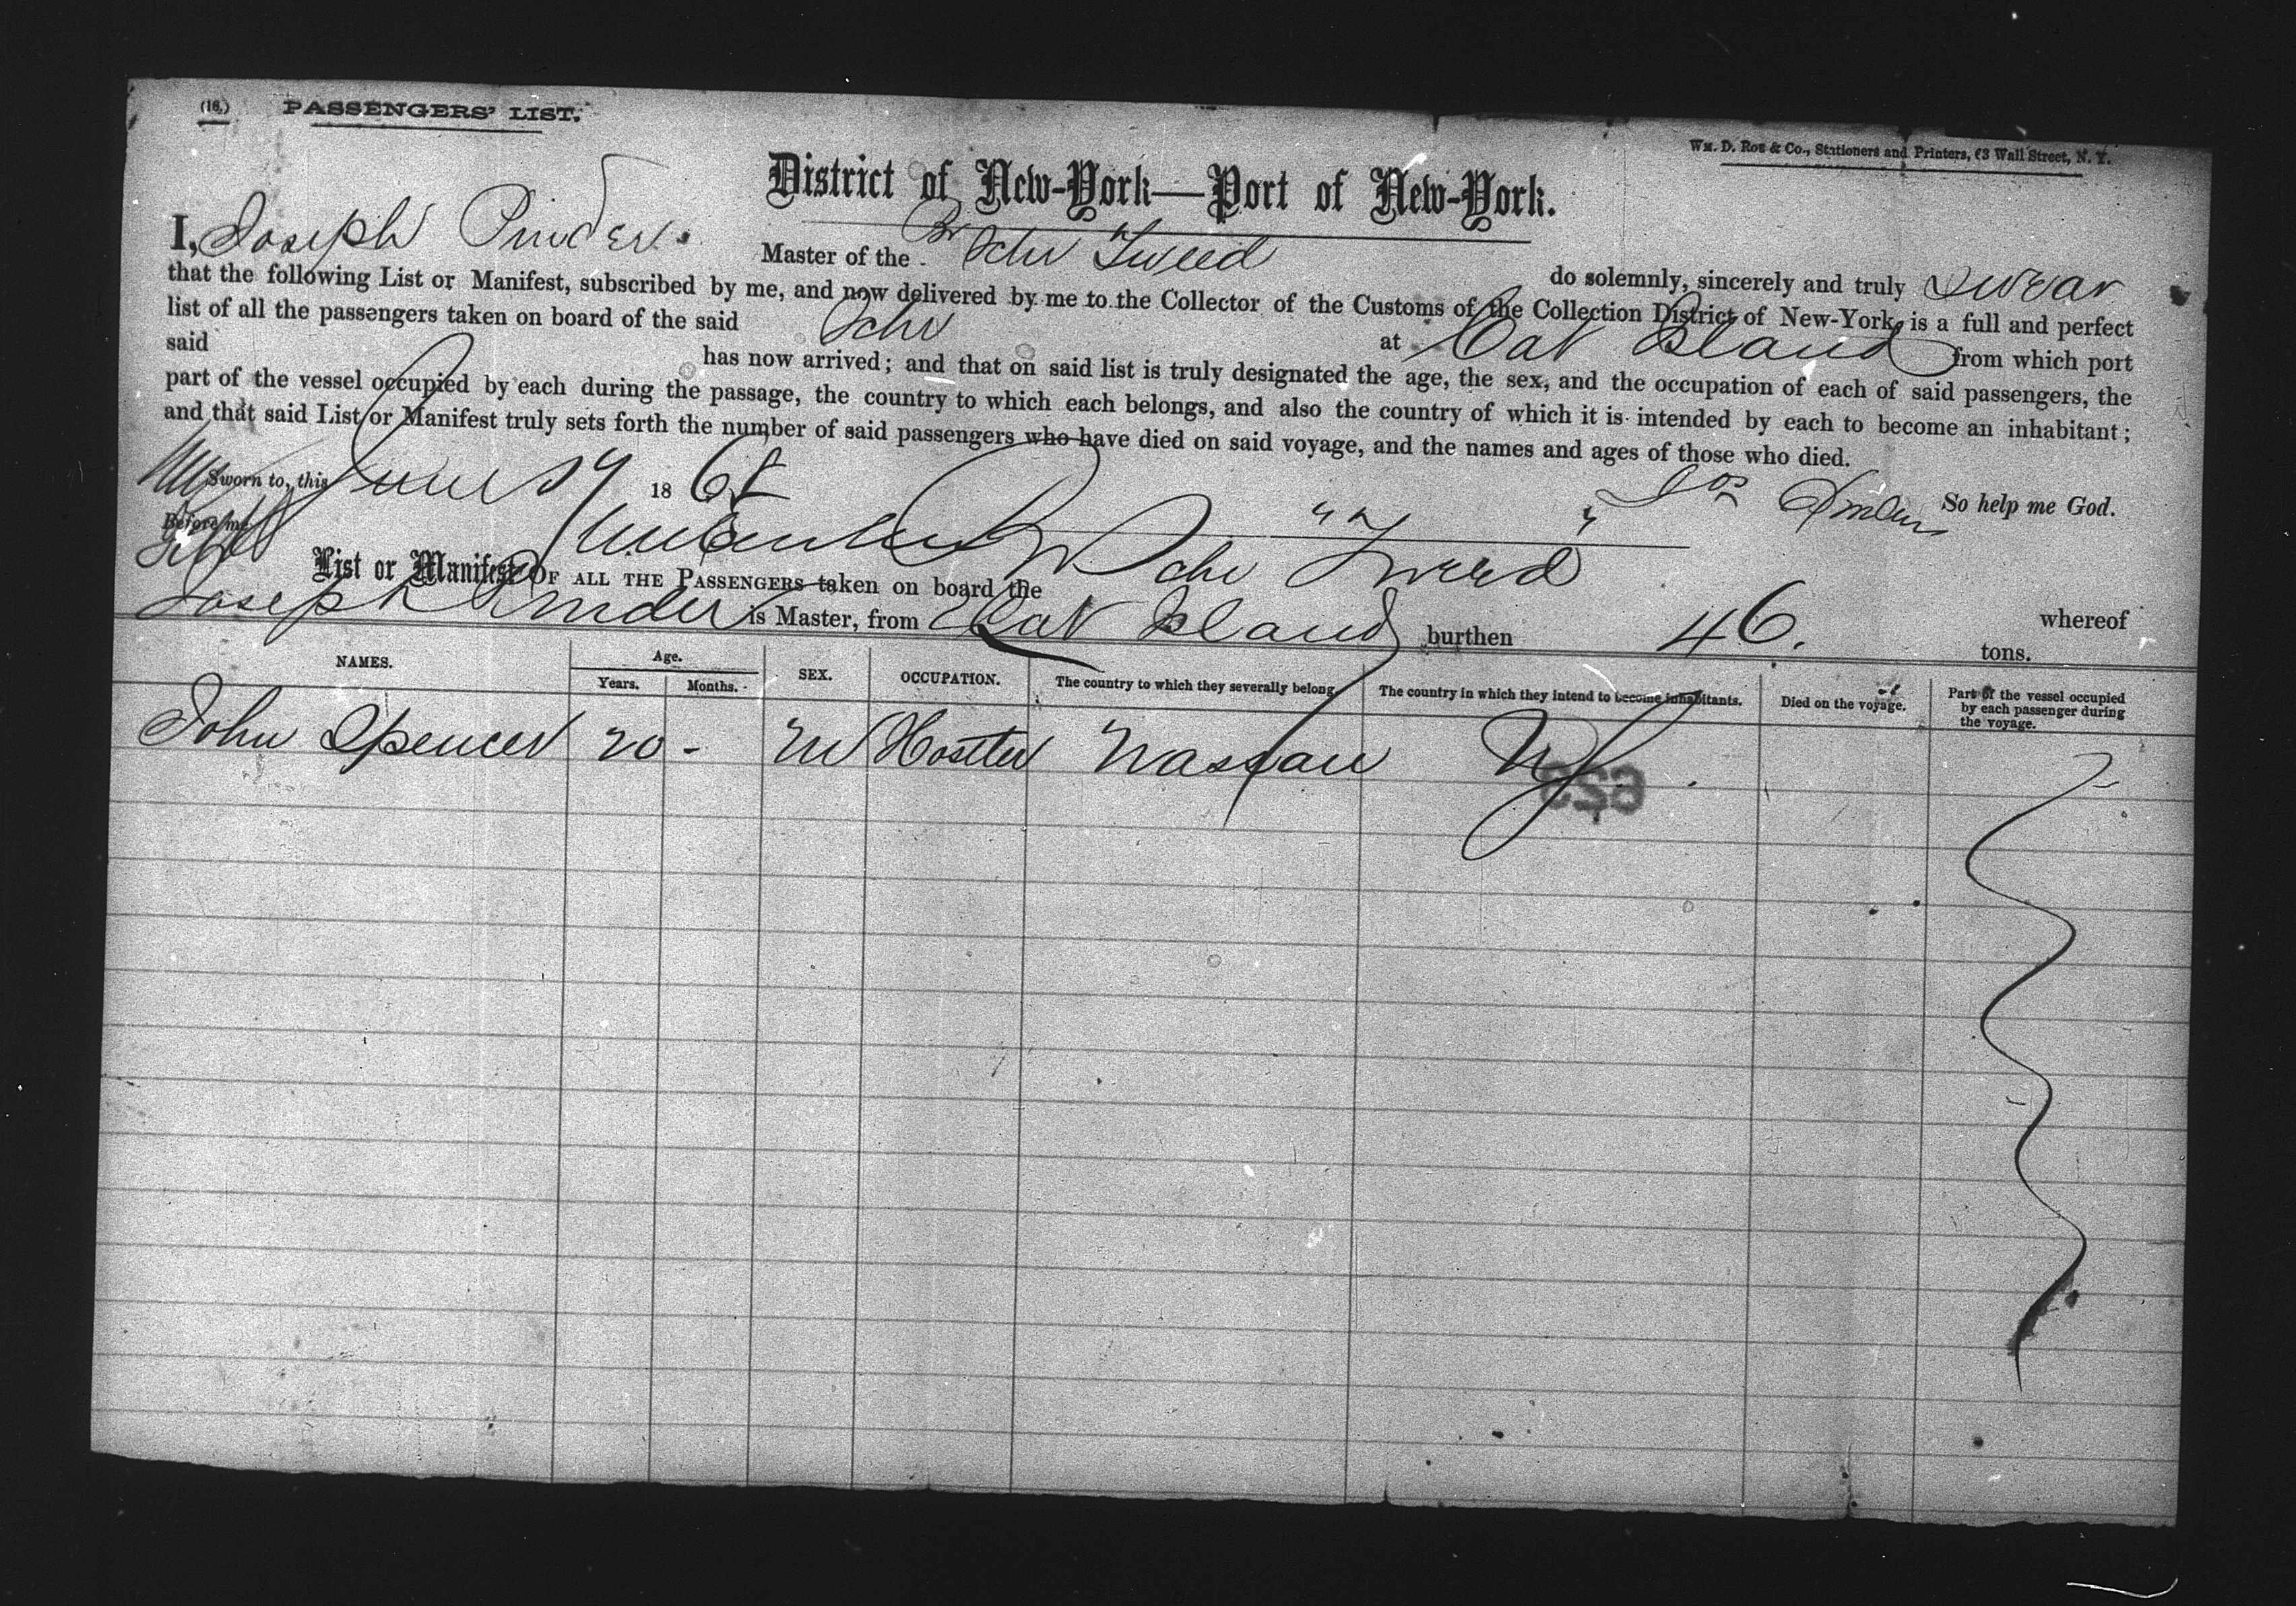 (16.) PASSENGERS' LIST.
Wm. D. Roe & Co., Stationers and Printers, 63 Wall Street, N. Y.
District of New-York—Port of New-York.
I, Joseph Pinder. Master of the Br Schr "Tweed do solemnly, sincerely and truly swear
that the following List or Manifest, subscribed by me, and now delivered by me to the Collector of the Customs of the Collection District of New-York, is a full and perfect
list of all the passengers taken on board of the said Schr at Cat Island from which port
said has now arrived; and that on said list is truly designated the age, the sex, and the occupation of each of said passengers, the
part of the vessel occupied by each during the passage, the country to which each belongs, and also the country of which it is intended by each to become an inhabitant;
and that said List or Manifest truly sets forth the number of said passengers who have died on said voyage, and the names and ages of those who died.
Sworn to, this June 19 1868 Jos Pinder So help me God.
Before me
List or Manifest OF ALL THE PASSENGERS taken on board the Schr "Tweed" whereof
Joseph Pinder is Master, from Cat Island burthen 46. tons.
NAMES. Age. Years. Months. SEX. OCCUPATION. The country to which they severally belong. The country in which they intend to become inhabitants. Died on the voyage. Part of the vessel occupied by each passenger during the voyage.
John Spencer 20 - M Hostler Nassau NY
629